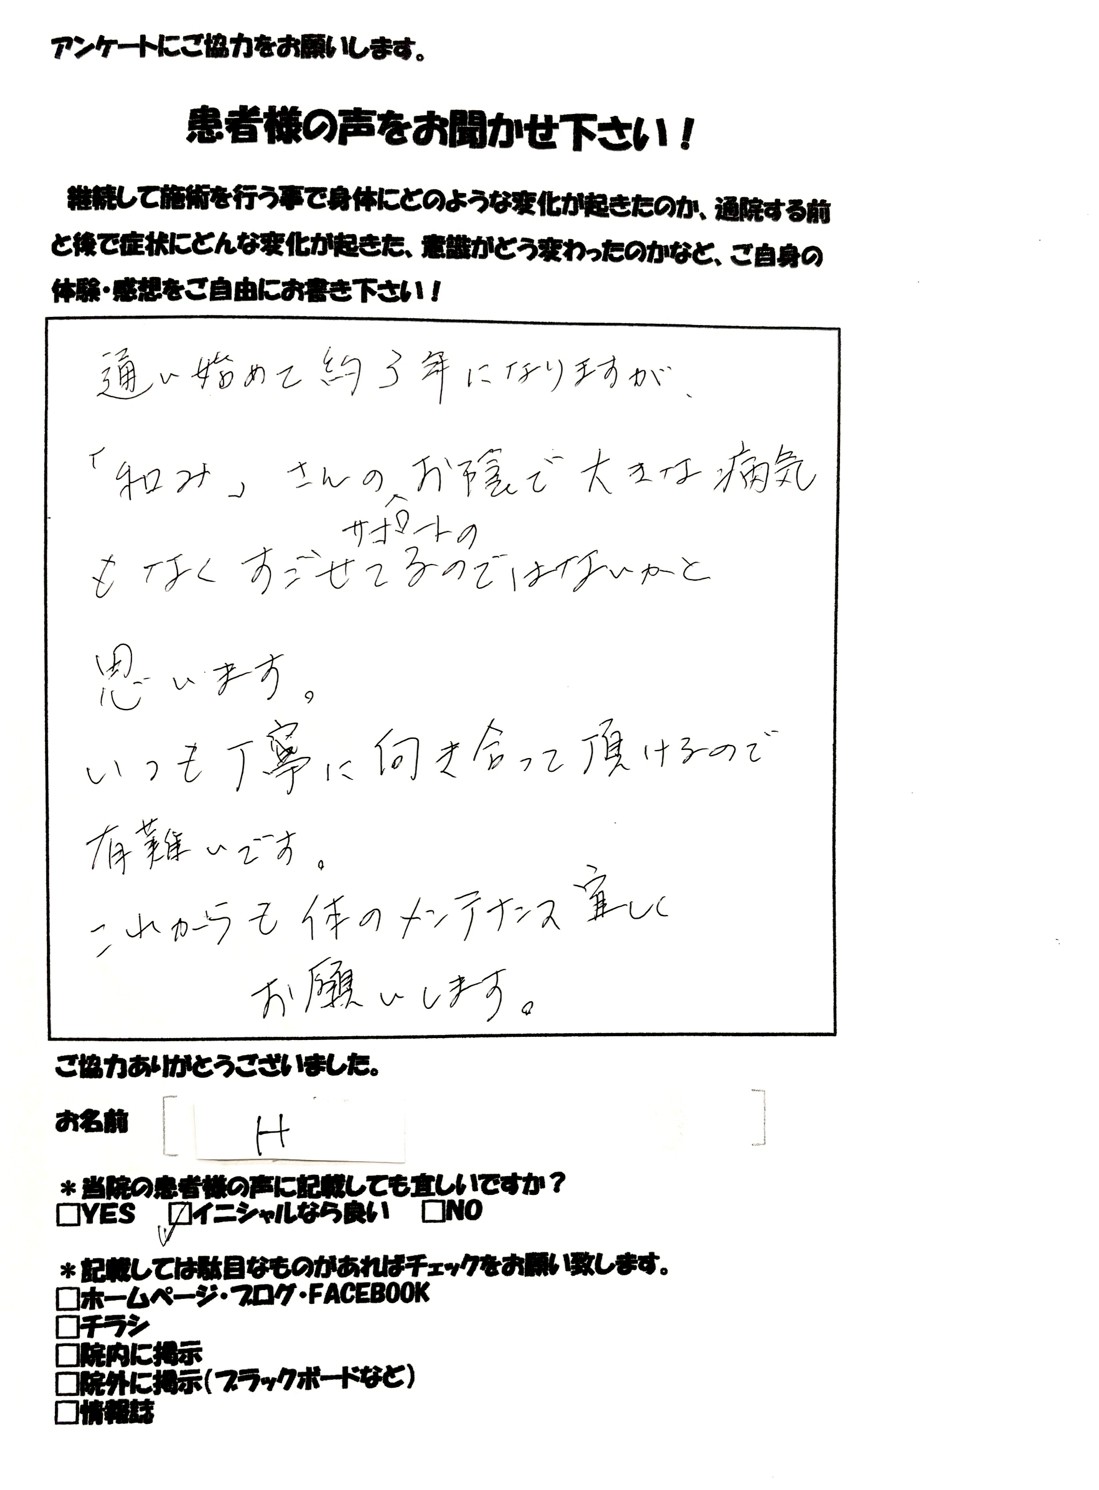 アンケートにご協力をお願いします。
患者様の声をお聞かせ下さい！
継続して施術を行う事で身体にどのような変化が起きたのか、通院する前
と後で症状にどんな変化が起きた、意識がどう変わったのかなど、ご自身の
体験・感想をご自由にお書き下さい！
通い始めて約3年になりますが、
「和み」さんのお陰で大きな病気
サポートの
もなくすごせてるのではないかと
思います。
いつも丁寧に向き合って頂けるので
有難いです。
これからも体のメンテナンス宜しく
お願いします。
ご協力ありがとうございました。
お名前 H
＊当院の患者様の声に記載しても宜しいですか？
□YES ☑イニシャルなら良い □NO
＊記載しては駄目なものがあればチェックをお願い致します。
□ホームページ・ブログ・FACEBOOK
□チラシ
□院内に掲示
□院外に掲示（ブラックボードなど）
□情報誌